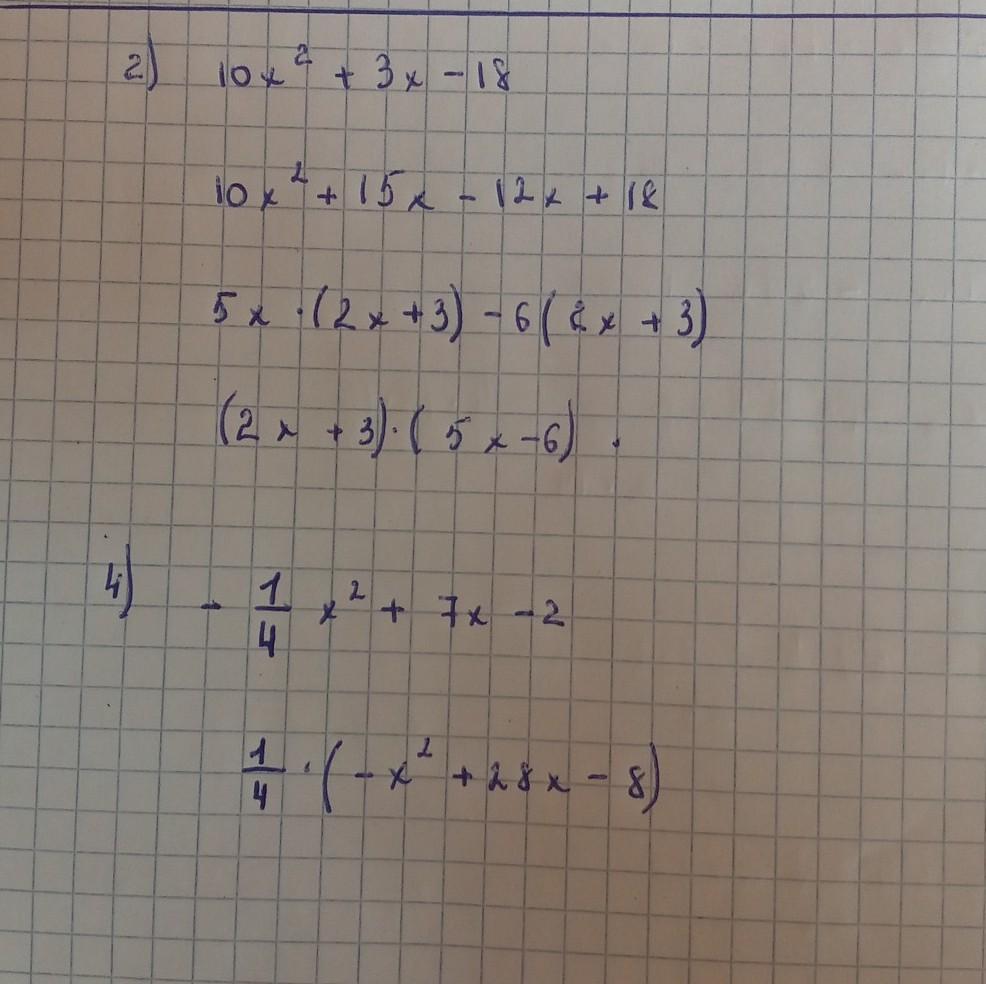 2) 10x² + 3x - 18
10x² + 15x - 12x + 18
5x · (2x + 3) - 6(2x + 3)
(2x + 3) · (5x - 6) .
4) - 1/4 x² + 7x - 2
1/4 · (-x² + 28x - 8)